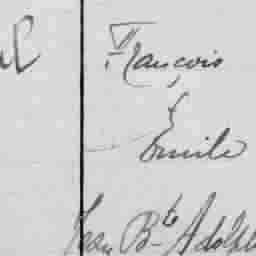 François
&
Emile
Jean Bte Adolph